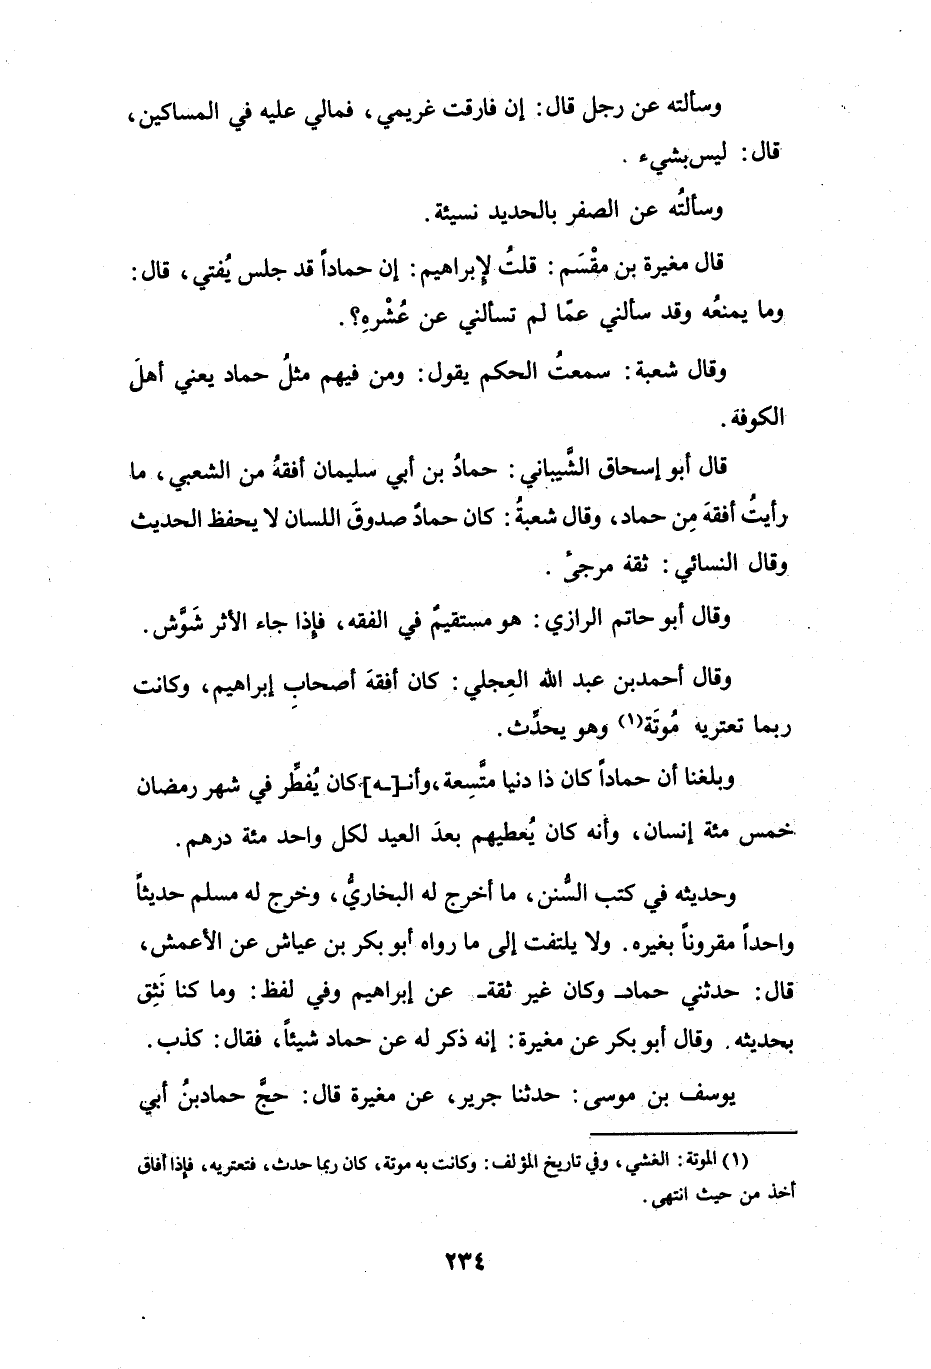 وسألته عن رجل قال: إن فارقت غريمي، فمالي عليه في المساكين،
قال: ليس بشيء .
وسألتُه عن الصفر بالحديد نسيئة.
قال مغيرة بن مقْسَم: قلتُ لإبراهيم: إن حماداً قد جلس يُفتي، قال:
وما يمنعُه وقد سألني عمّا لم تسألني عن عُشْرهِ؟.
وقال شعبة: سمعتُ الحكم يقول: ومن فيهم مثلُ حماد يعني أهلَ
الكوفة.
قال أبو إسحاق الشَّيباني: حمادُ بن أبي سليمان أفقهُ من الشعبي، ما
رأيتُ أفقهَ مِن حماد، وقال شعبةُ: كان حمادٌ صدوقَ اللسان لا يحفظ الحديث
وقال النسائي: ثقة مرجىٔ .
وقال أبو حاتم الرازي: هو مستقيمٌ في الفقه، فإذا جاء الأثر شَوَّش.
وقال أحمدبن عبد الله العِجلي: كان أفقهَ أصحابِ إبراهيم، وكانت
ربما تعتريه مُوتَة(١) وهو يحدِّث.
وبلغنا أن حماداً كان ذا دنيا متَّسِعة، وأنـ[ـه] كان يُفطِّر في شهر رمضان
خمس مئة إنسان، وأنه كان يُعطيهم بعدَ العيد لكل واحد مئة درهم.
وحديثه في كتب السُّنن، ما أخرج له البخاريُّ، وخرج له مسلم حديثاً
واحداً مقروناً بغيره. ولا يلتفت إلى ما رواه أبو بكر بن عياش عن الأعمش،
قال: حدثني حماد ـ وكان غير ثقة ـ عن إبراهيم وفي لفظ: وما كنا نَثِق
بحديثه. وقال أبو بكر عن مغيرة: إنه ذكر له عن حماد شيئاً، فقال: كذب.
يوسف بن موسى: حدثنا جرير، عن مغيرة قال: حجَّ حمادبنُ أبي
(١) الموتة: الغشي، وفي تاريخ المؤلف: وكانت به موتة، كان ربما حدث، فتعتريه، فإذا أفاق
أخذ من حيث انتهى.
٢٣٤